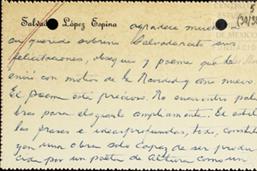 5
(39/39)
Salvador López Espina agradece mucho
su querido sobrino Salvadorcito sus
felicitaciones, obsequio y poema que le
envió con motivo de la Navidad y año nuevo
El poema está precioso. No encuentro pala
bras para elogiarlo ampliamente. El estilo
las frases e incorporadas, todo, constitu
yen una obra solo capaz de ser produ
cida por un poeta de altura como un